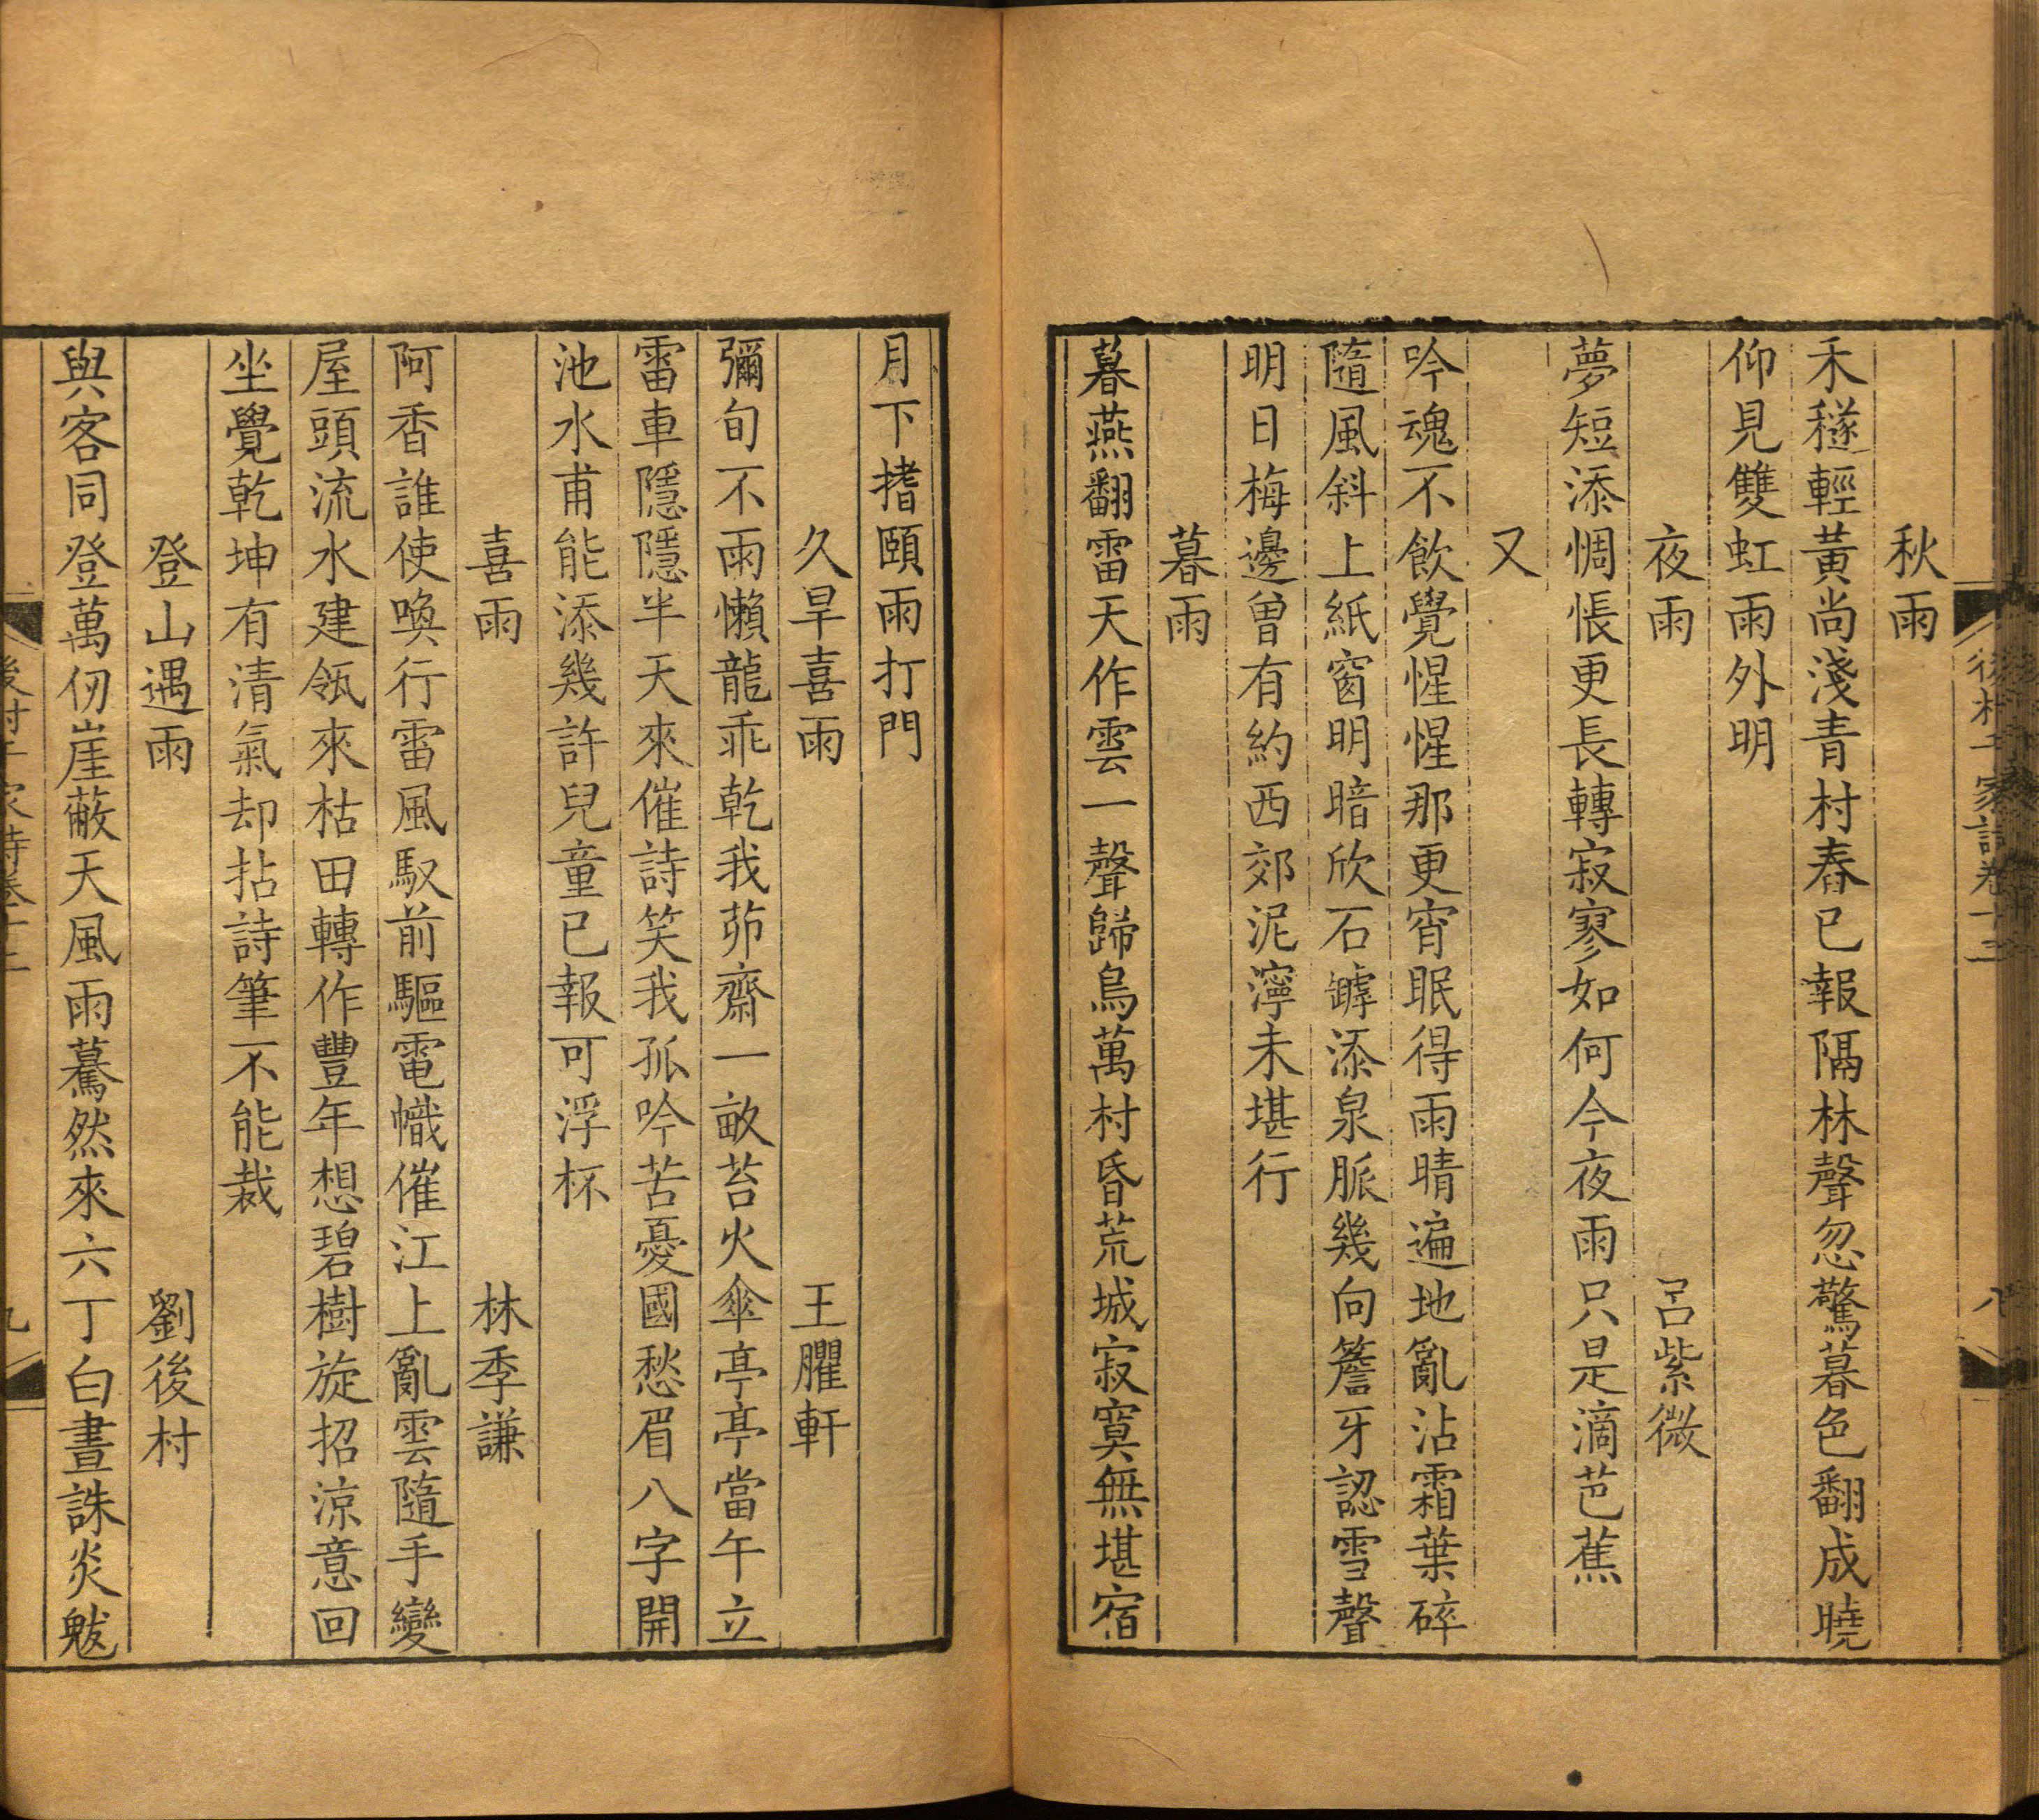 後村千家詩卷十三
八
秋雨
禾穟輕黃尚淺青村舂已報隔林聲忽驚暮色翻成曉
仰見雙虹雨外明
夜雨 呂紫微
夢短添惆悵更長轉寂寥如何今夜雨只是滴芭蕉
又
吟魂不飲覺惺惺那更宵眠得雨晴遍地亂沾霜葉碎
隨風斜上紙窗明暗欣石罅添泉脈幾向簷牙認雪聲
明日梅邊曾有約西郊泥濘未堪行
暮雨
暮燕翻雷天作雲一聲歸鳥萬村昏荒城寂寞無堪宿
月下搘頤雨打門
久旱喜雨 王臞軒
彌旬不雨懶龍乖乾我茆齋一畝苔火傘亭亭當午立
雷車隱隱半天來催詩笑我孤吟苦憂國愁眉八字開
池水甫能添幾許兒童已報可浮杯
喜雨 林季謙
阿香誰使喚行雷風馭前驅電幟催江上亂雲隨手變
屋頭流水建瓴來枯田轉作豐年想碧樹旋招涼意回
坐覺乾坤有清氣却拈詩筆不能裁
登山遇雨 劉後村
與客同登萬仞崖蔽天風雨驀然來六丁白晝誅炎魃
後村千家詩卷十三
九